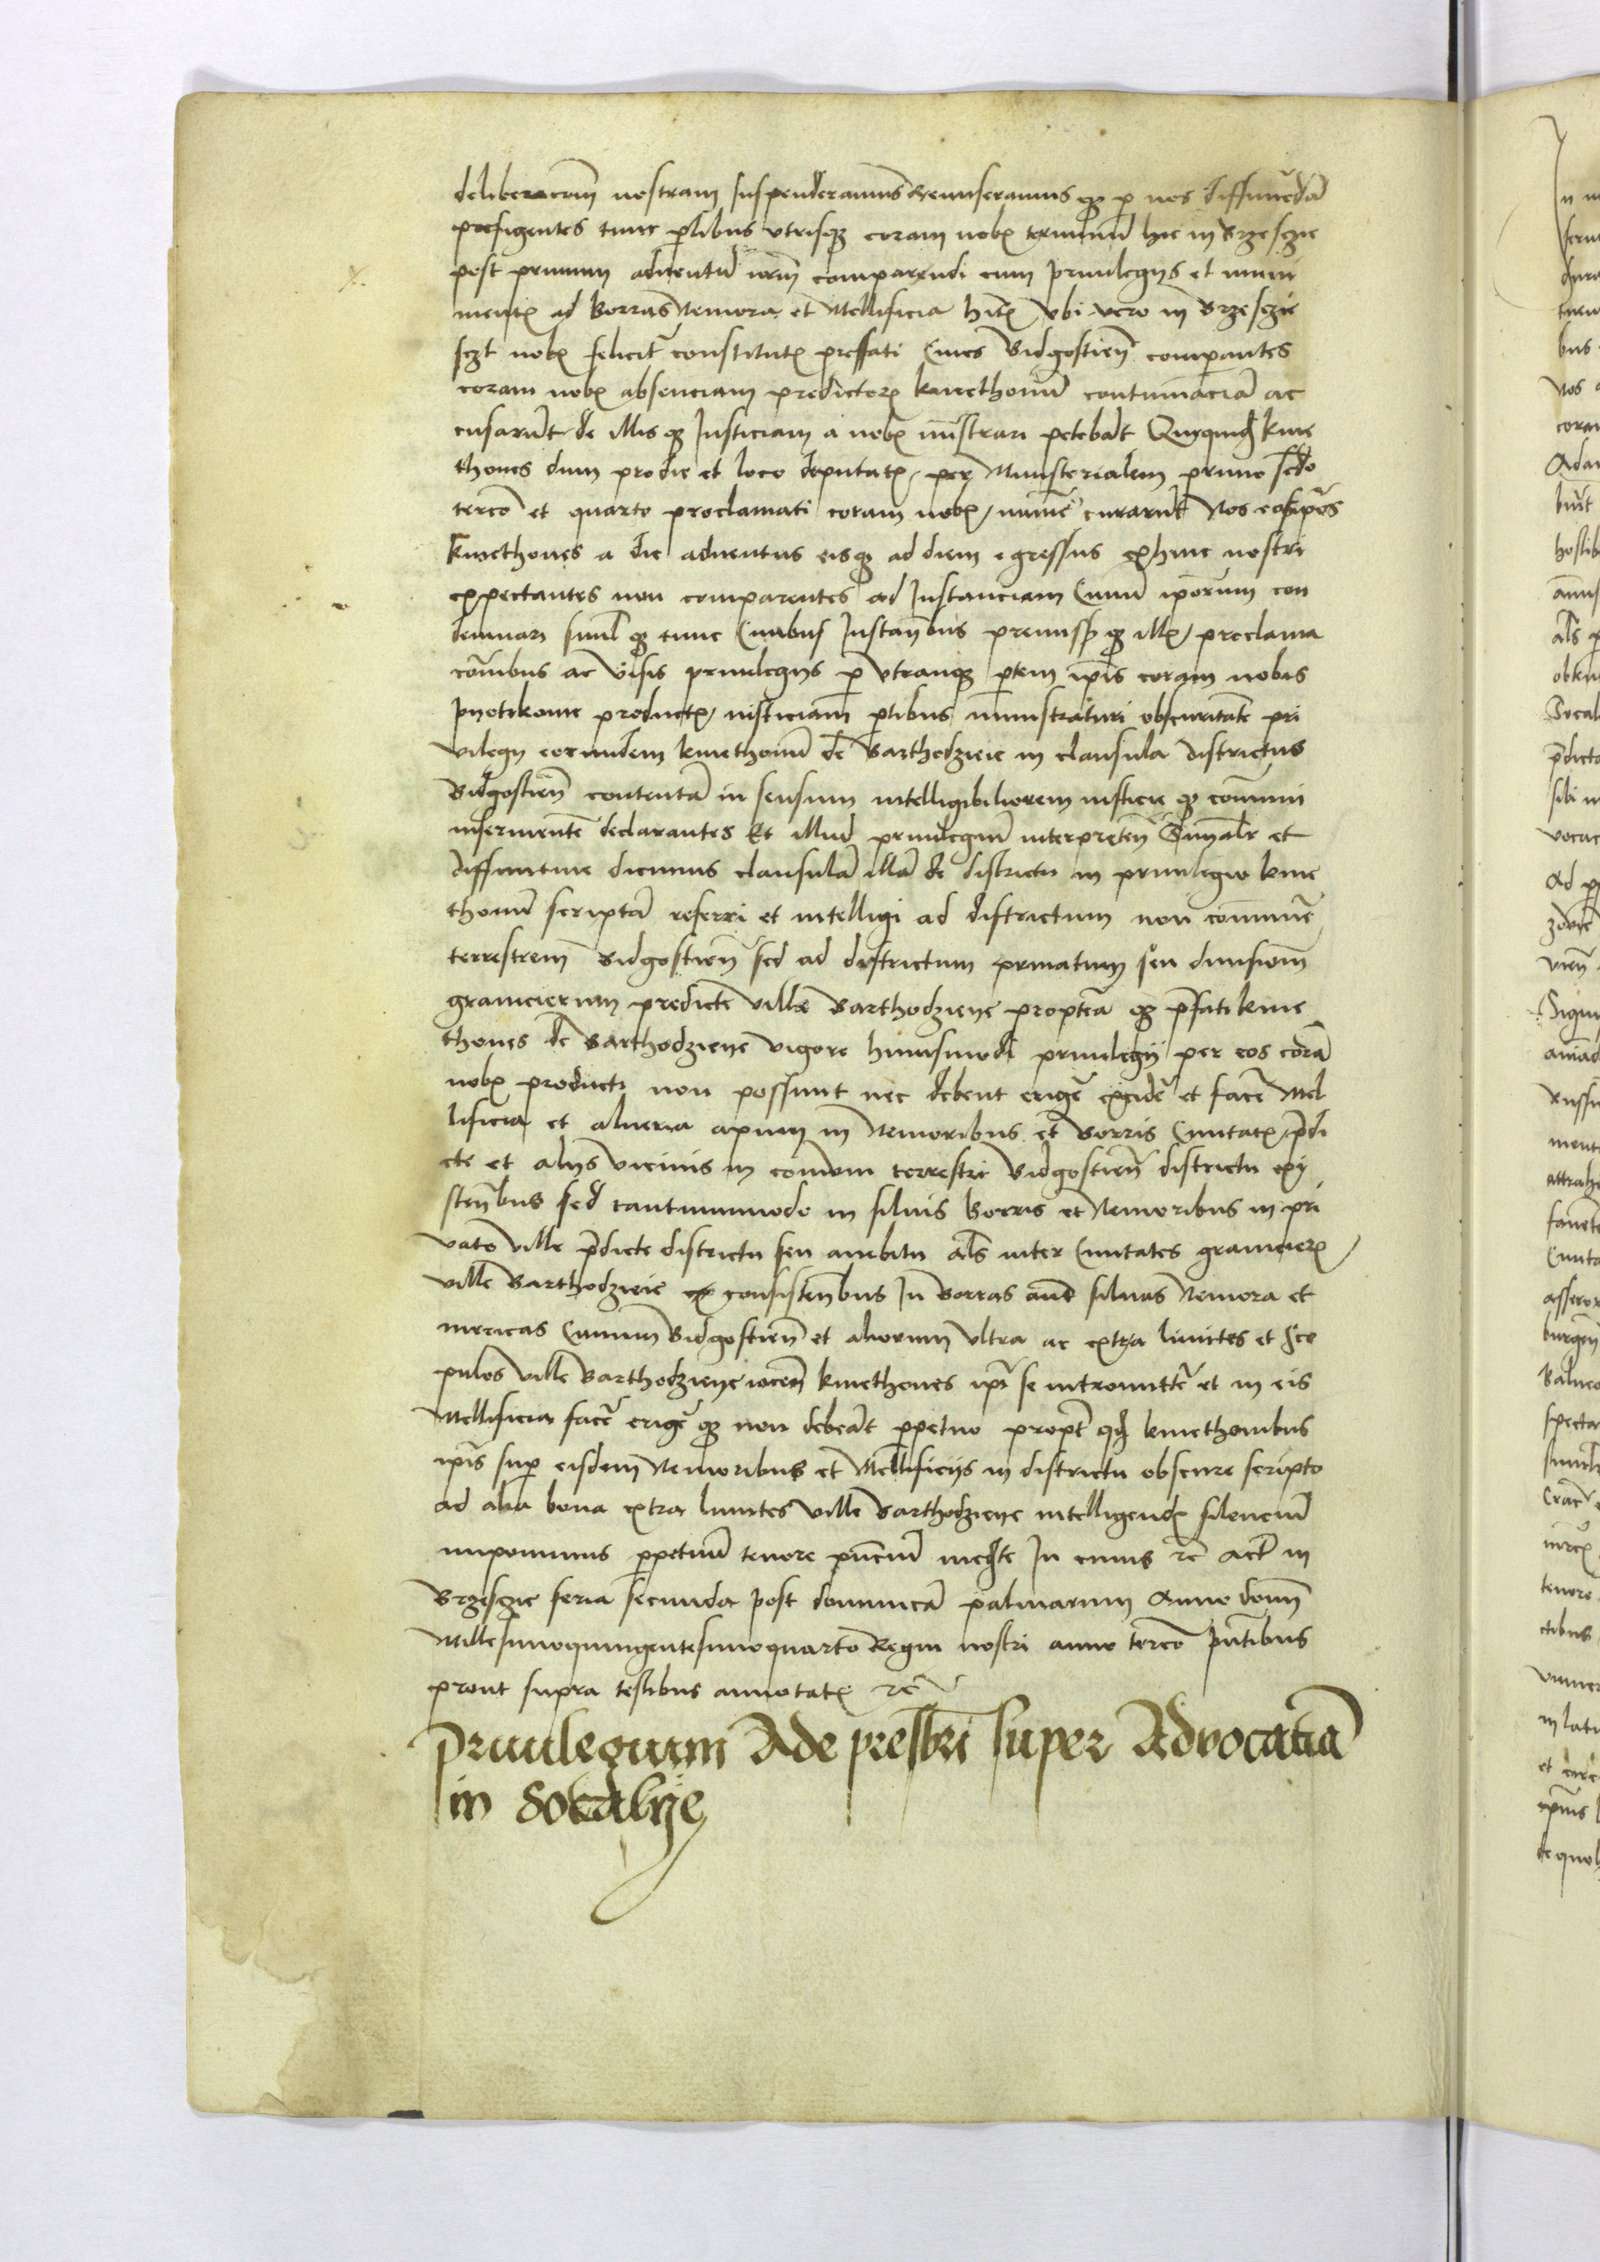 deliberacōm nostram suspenderamus Remiseramus qȝ p nos diffiniēdā
prefigentes tunc ptibus vtrisqȝ coram nobꝫ terminū hic in Brzesczie
post primum aduentū nrm̄ comparendi cum priuilegys et muni
mentꝫ ad borras Nemora et Mellificia hitꝫ vbi vero in Brzesczie
felicitr̄ constitutꝫ preffati Ciues Bidgostien̄ comparantes
coram nobꝫ absenciam predictorꝫ kmethonū contumaciā ac
cusarūt de illis qȝ Justiciam a nobꝫ mīstrari petebāt Quiquidē kme
thones dum pro die et loco deputatꝫ per Ministerialem primo scd̄o
tercō et quarto proclamati coram nobꝫ curarūt Nos eosipōs
kmethones a die aduentus eisqȝ ad diem egressus exhinc nostri
expectantes non comparentes ad Instanciam Ciuiū ipōrum con
demnari siml̄ qȝ tunc Ciuibus Instan̄bus premissꝭ qȝ illꝫ proclama
cōnibus ac visis priuilegys p vtranqȝ ptem ip̄is coram nobis
productꝫ iusticiam ptibus ministraturi obscuritatē pri
uilegy eorundem kmethonū de Barthodzieie in clausula districtus
Bidgostien̄ contentā in sensum intelligibiliorem iusticie qȝ communi
inseruientē declarantes Et illud priuilegiū interpreten̄ Smaālr̄ et
diffinitiue dicimus clausulā illā de districtu in priuilegio kme
thonū scriptā referri et intelligi ad districtum non commune
terrestrem Bidgostien̄ sed ad districtum priuatum seu diuisionem
granicierum predicte ville Barthodzieye propterea qȝ p̄fati kme
thones de Barthodzieye vigore huiusmodi priuilegij per eos corā
nobꝫ producti non possunt nec debent erigē excidē et facē Mel
lificia et aluearia apum in Nemoribus et Borris Ciuitatꝫ p̄di
cte et alys vicinis in comōm terrestri Bidgostien̄ districtu exi
sten̄bus sed tantummodo in siluis borris et Nemoribus in pri
vato ville p̄dicte districtu seu ambitu als inter Ciuitates granicierꝫ
ville Barthodzieie consisten̄bus In Borras autē siluas Nemora et
mericas Ciuium Bidgostien̄ et aliorum vltra ac extra limites et Sco
pulos ville Barthodzieye iacen̄ kmethones ip̄i se intromittē et in eis
Mellificia facē erigē qȝ non debeāt ppetuo propt̄ qd̄ kmethonibus
ip̄is sup eisdem Nemoribus et Mellificijs in districtu obscure scripto
ad alia bona extra limites ville Barthodzieye intelligendꝭ silenciū
imponimus ppetuū tenore pn̄ciū med̄te In cuius rē Actū in
Brzesczie feria secunda post dominicā palmarum Anno domī
Millesimoquingentesimoquarto Regni nostri anno tercō pn̄tibus
prout supra testibus annotatꝫ rē
Priuilegium Ade presbri super Advocatiā
in Socalye